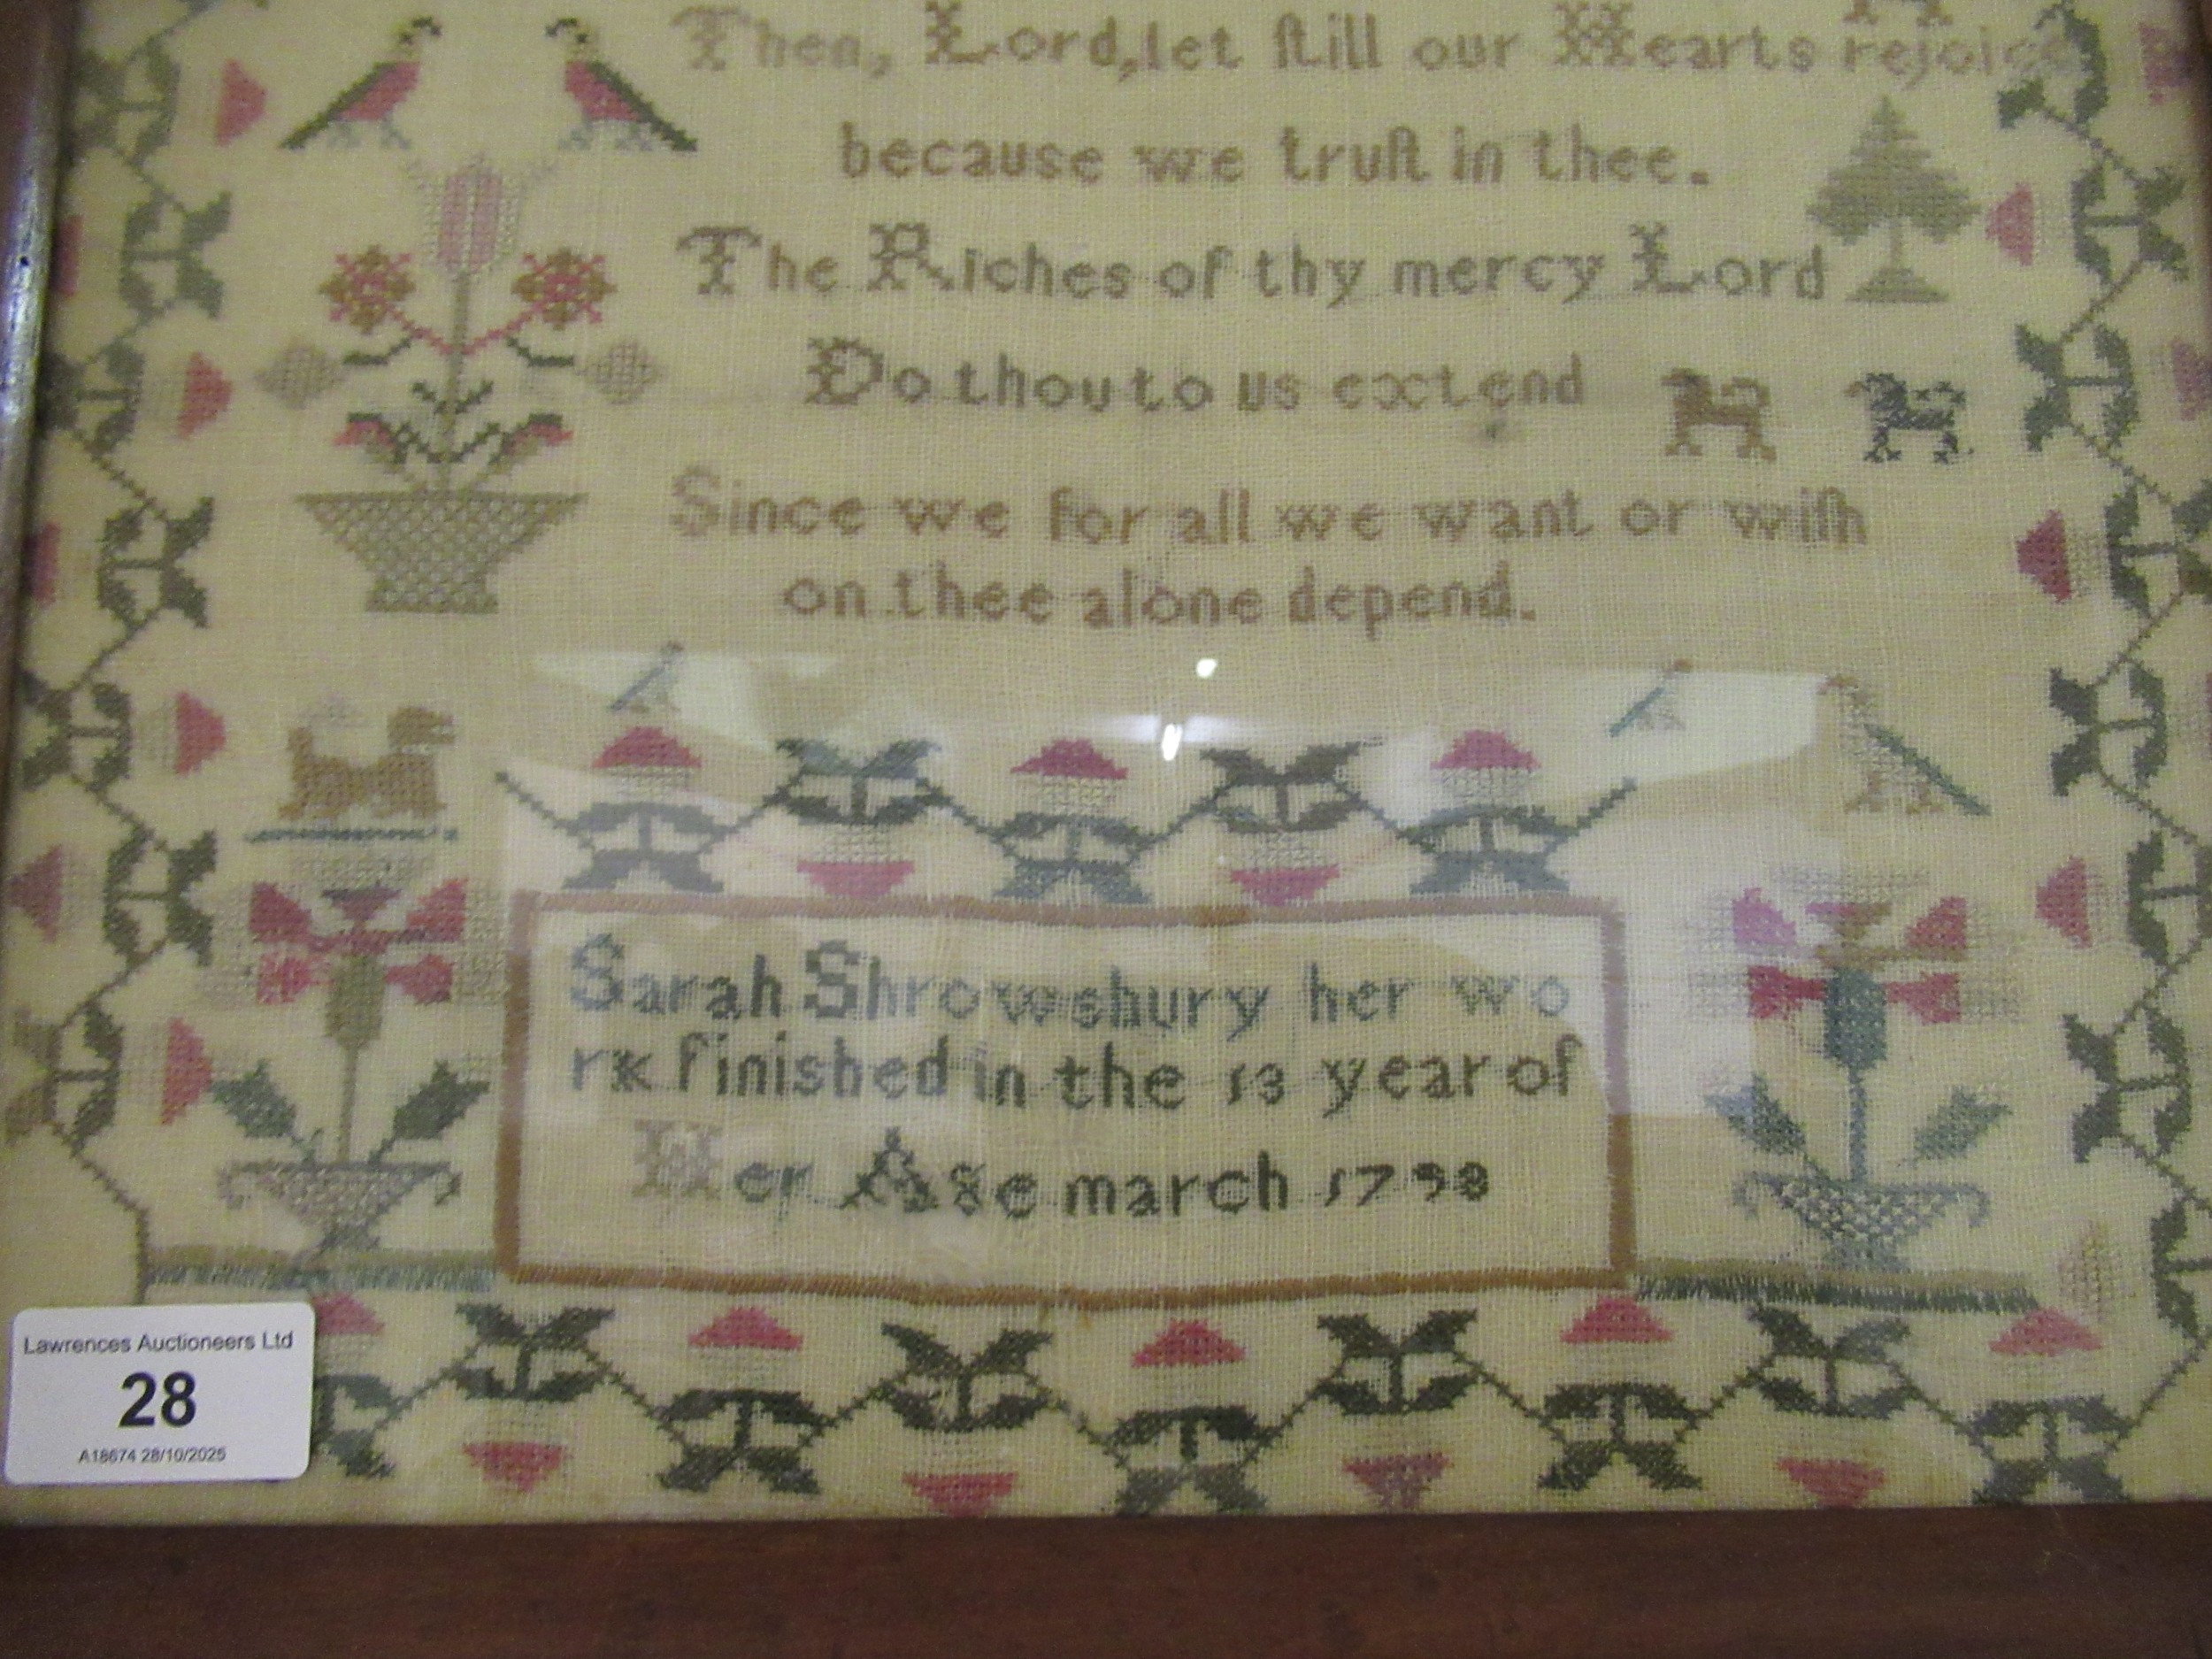 Then, Lord, let ſtill our Hearts rejoice
because we truſt in thee.
The Riches of thy mercy Lord
Do thou to us extend
Since we for all we want or wiſh
on thee alone depend.
Sarah Shrowsbury her wo
rk finished in the 13 year of
Her Age march 1798
Lawrences Auctioneers Ltd
28
A18674 28/10/2025